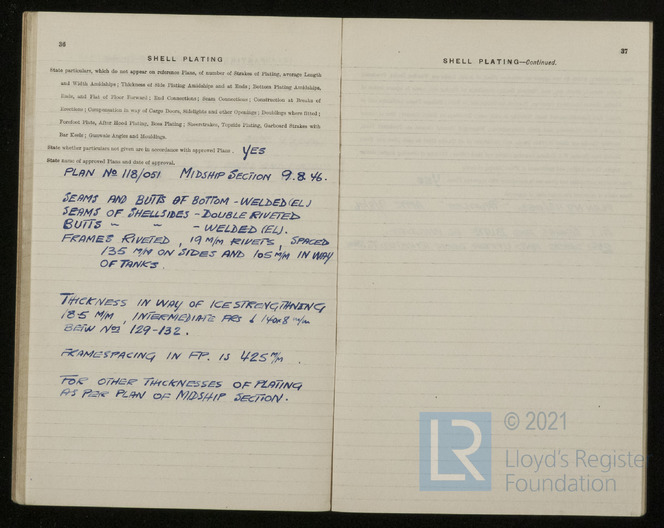 36
SHELL PLATING
State particulars, which do not appear on reference Plans, of number of Strakes of Plating, average Length
and Width Amidships; Thickness of Side Plating Amidships and at Ends; Bottom Plating Amidships,
Ends, and Flat of Floor Forward; End Connections; Seam Connections; Construction at Breaks of
Erections; Compensation in way of Cargo Doors, Sidelights and other Openings; Doublings where fitted;
Forefoot Plate, After Hood Plating, Boss Plating; Sheerstrakes, Topside Plating, Garboard Strakes with
Bar Keels; Gunwale Angles and Mouldings.
State whether particulars not given are in accordance with approved Plans. YES
State name of approved Plans and date of approval.
PLAN No 118/051 MIDSHIP SECTION 9.8.46.
SEAMS AND BUTTS OF BOTTOM - WELDED (EL)
SEAMS OF SHELLSIDES - DOUBLE RIVETED
BUTTS " " - WELDED (EL).
FRAMES RIVETED, 19 M/M RIVETS, SPACED
135 M/M ON SIDES AND 105 M/M IN WAY
OF TANKS.
THICKNESS IN WAY OF ICESTRENGTHNING
18.5 M/M, INTERMEDIATE FRS 140x8 m/m
BETW Nos 129-132.
FRAMESPACING IN FP. IS 425 M/M.
FOR OTHER THICKNESSES OF PLATING
AS PER PLAN OF MIDSHIP SECTION.
37
SHELL PLATING—Continued.
LR
© 2021
Lloyd's Register
Foundation